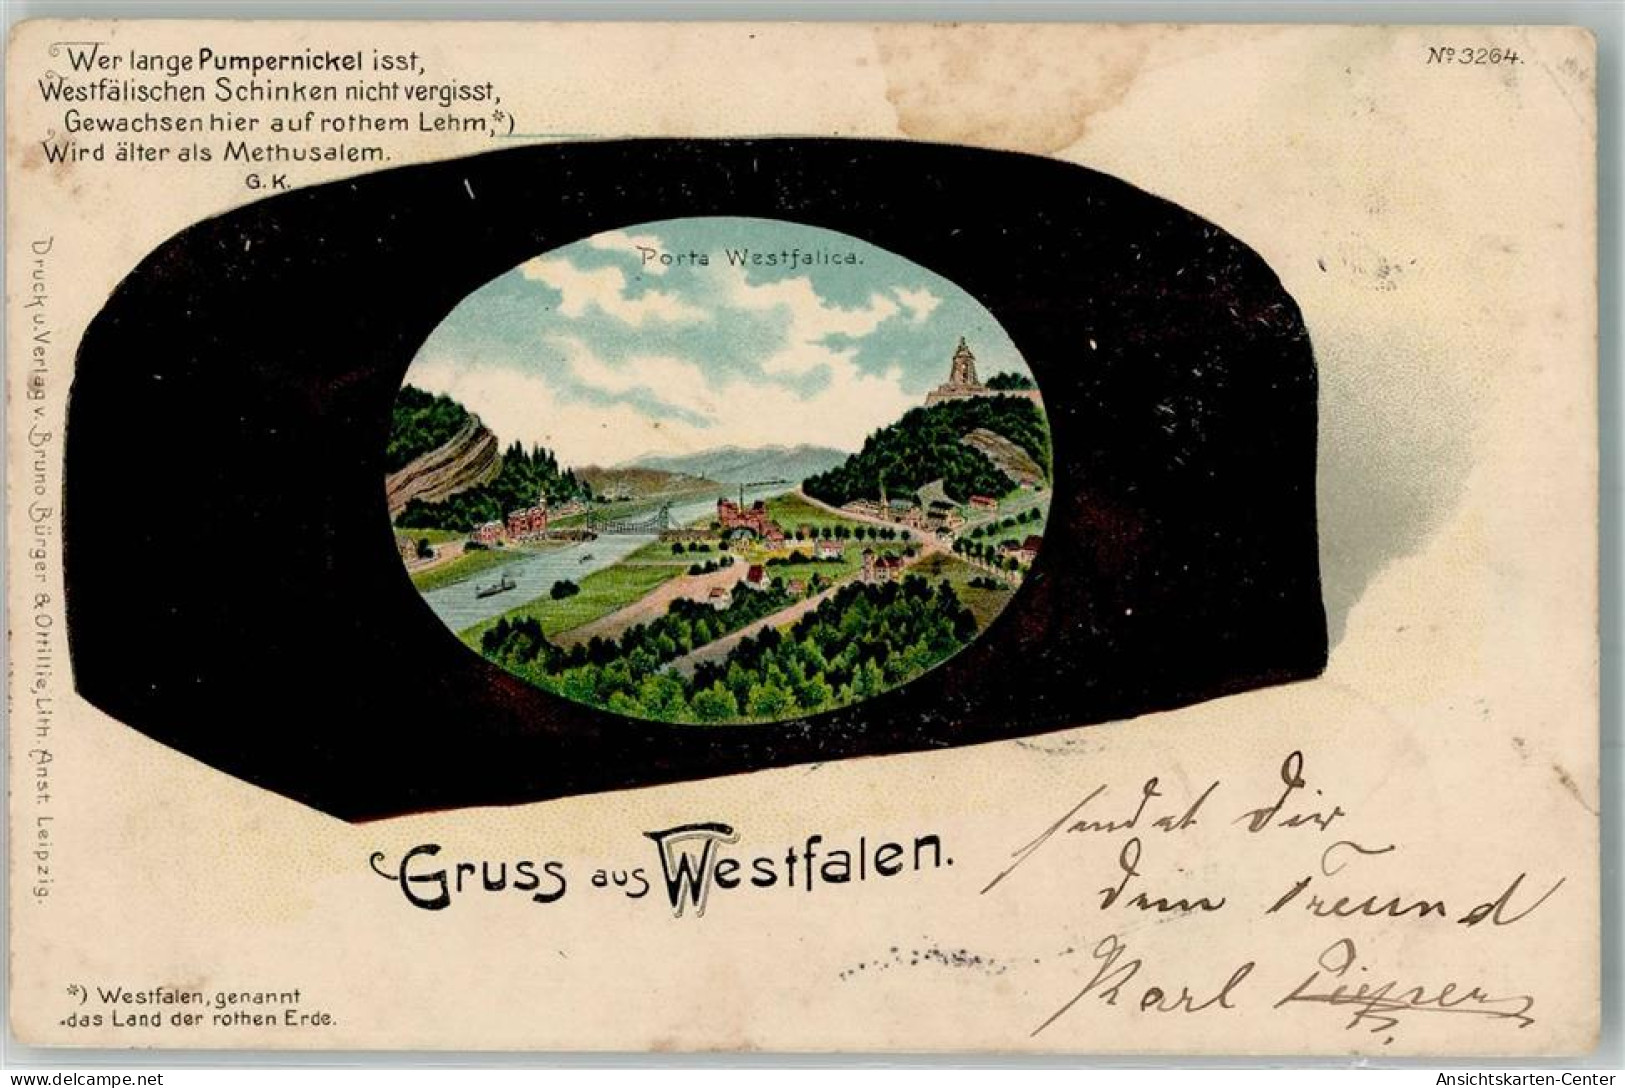 Wer lange Pumpernickel isst,
Westfälischen Schinken nicht vergisst,
Gewachsen hier auf rothem Lehm,*)
Wird älter als Methusalem.
G. K.
No 3264.
Porta Westfalica.
Druck u. Verlag v. Bruno Bürger & Ottillie, Lith. Anst. Leipzig.
Gruss aus Westfalen.
sendet Dir
Dein Freund
Karl Pieper
*) Westfalen, genannt
das Land der rothen Erde.
delcampe.net
Ansichtskarten-Center